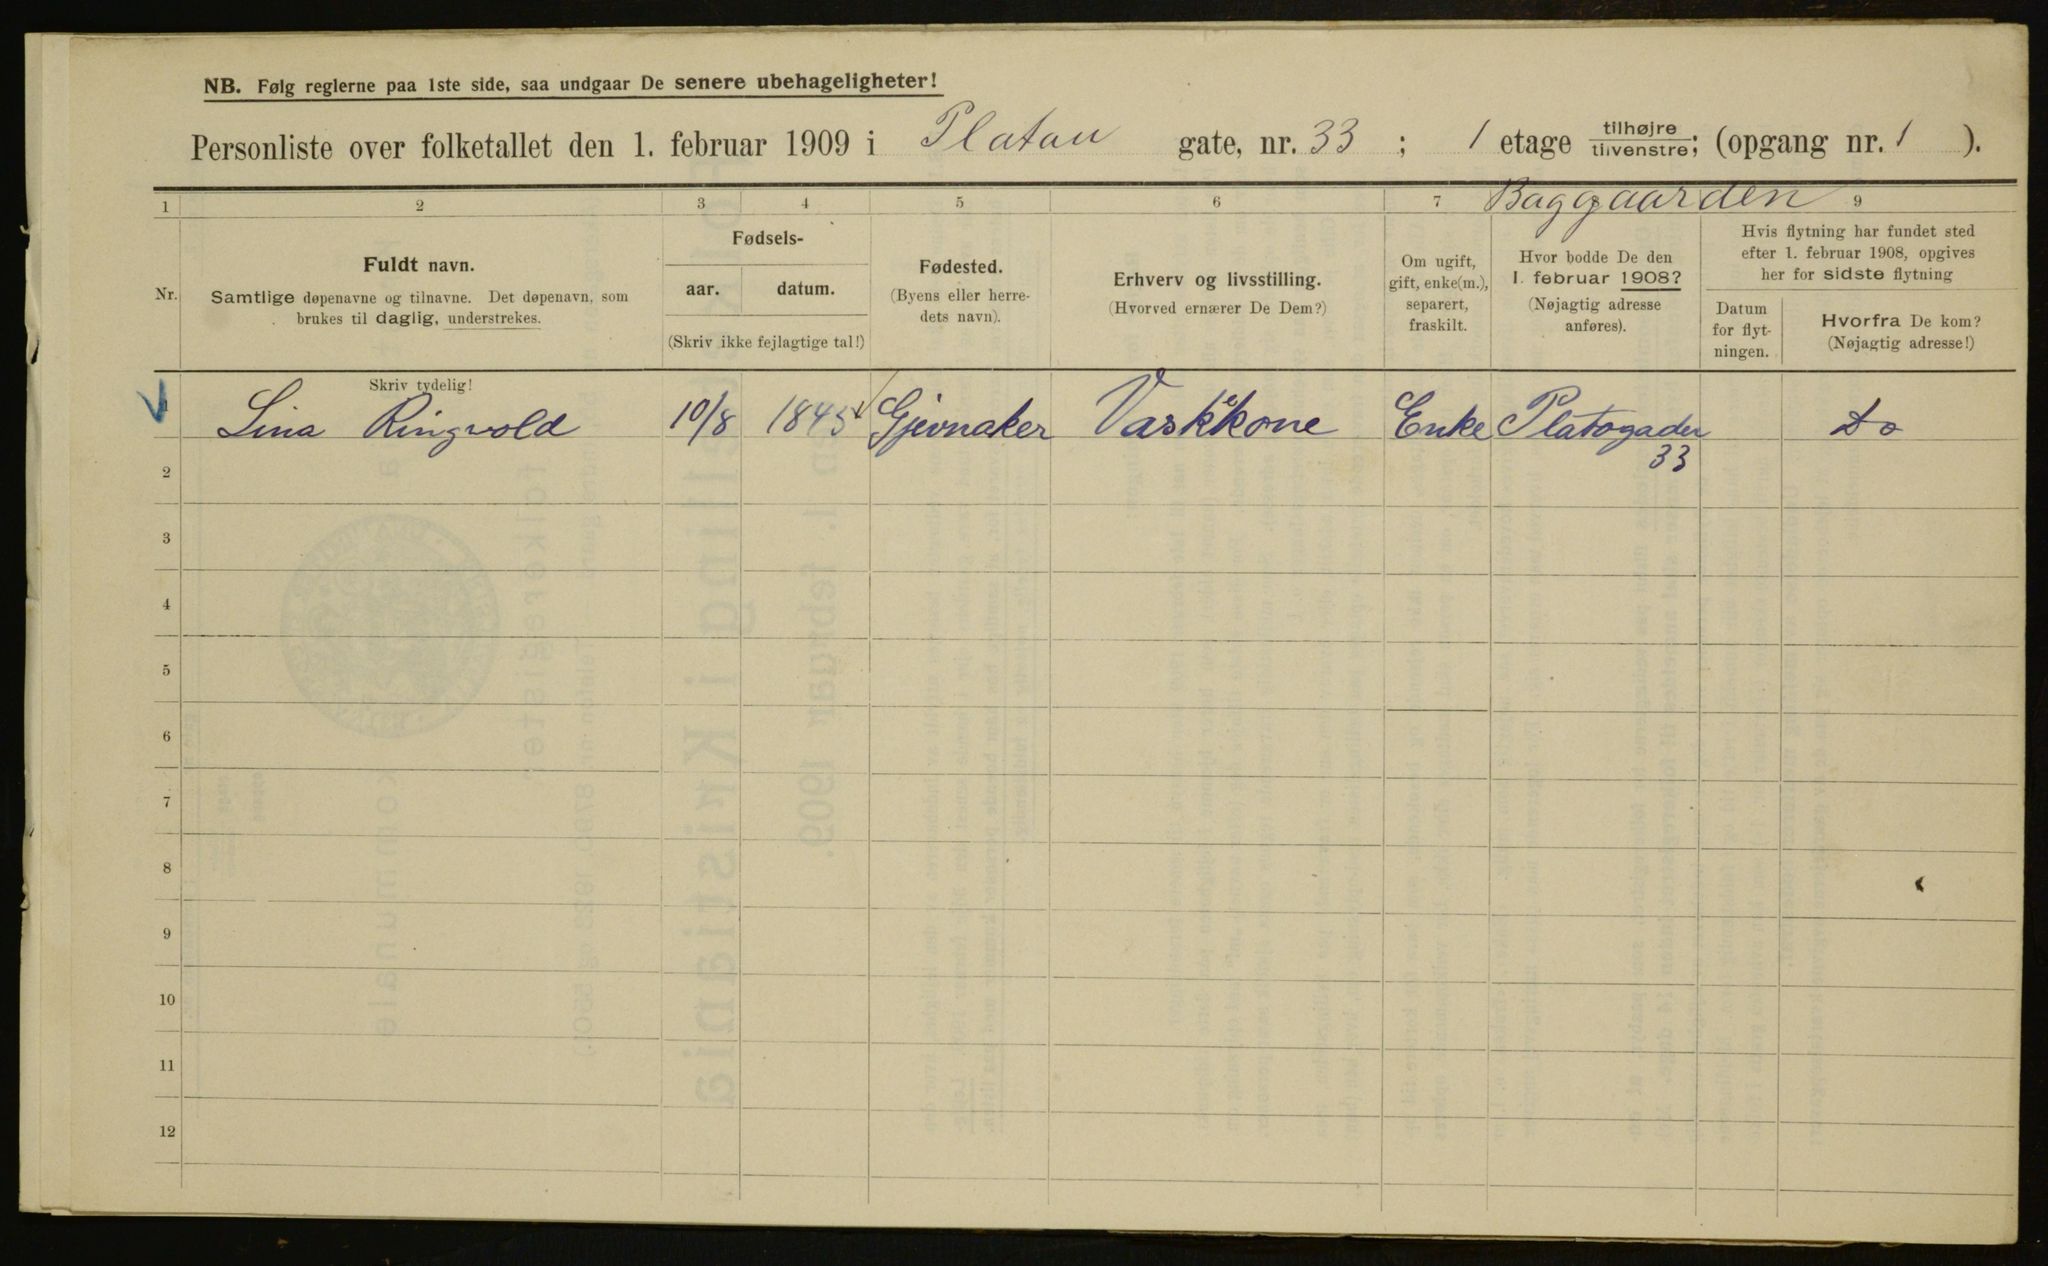 NB. Følg reglerne paa 1ste side, saa undgaar De senere ubehageligheter!
Personliste over folketallet den 1. februar 1909 i Platou gate, nr. 33 ; 1 etage tilhøjre tilvenstre; (opgang nr. 1 ).
Baggaarden
1 2 3 4 5 6 7 8 9
Nr.
Fuldt navn.
Samtlige døpenavne og tilnavne. Det døpenavn, som
brukes til daglig, understrekes.
Fødsels-
aar. datum.
(Skriv ikke fejlagtige tal!)
Fødested.
(Byens eller herre-
dets navn).
Erhverv og livsstilling.
(Hvorved ernærer De Dem?)
Om ugift,
gift, enke(m.),
separert,
fraskilt.
Hvor bodde De den
1. februar 1908?
(Nøjagtig adresse
anføres).
Hvis flytning har fundet sted
efter 1. februar 1908, opgives
her for sidste flytning
Datum
for flyt-
ningen.
Hvorfra De kom?
(Nøjagtig adresse!)
Skriv tydelig!
1 Lina Ringvold 10/8 1845 Gjevnaker Vaskekone Enke Platogaden Do
33
2
3
4
5
6
7
8
9
10
11
12